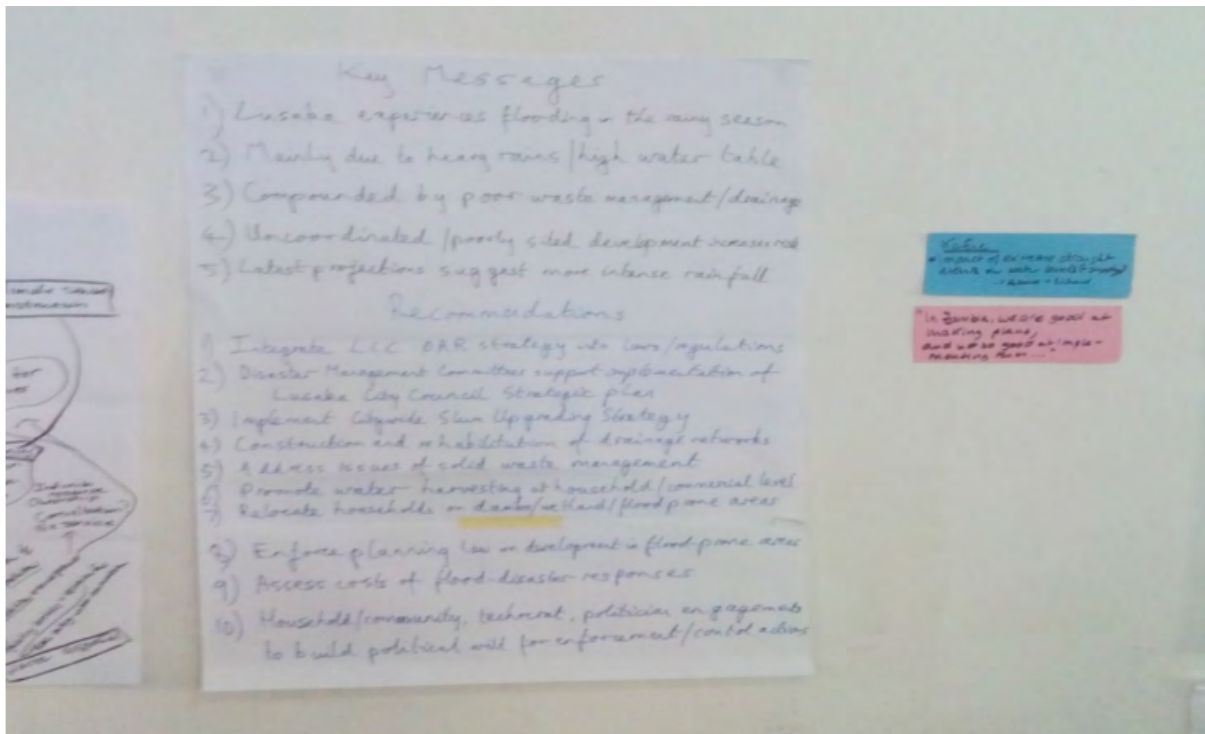 Key Messages
1) Lusaka experiences flooding in the rainy season
2) Mainly due to heavy rains/high water table
3) Compounded by poor waste management/drainage
4) Uncoordinated/poorly sited development increases risk
5) Latest projections suggest more intense rainfall
Recommendations
1) Integrate LCC DRR strategy into laws/regulations
2) Disaster Management Committees support implementation of
Lusaka City Council Strategic plan
3) Implement Citywide Slum Upgrading Strategy
4) Construction and rehabilitation of drainage networks
5) Address issues of solid waste management
6) Promote water harvesting at household/commercial level
7) Relocate households on dambo/wetland/flood prone areas
8) Enforce planning law on development in flood-prone areas
9) Access costs of flood-disaster responses
10) Household/community, technocrat, politician engagements
to build political will for enforcement/control actions
impact of extreme drought
events on water
"In Zambia, we are good at
making plans,
and not so good at imple-
menting them ..."